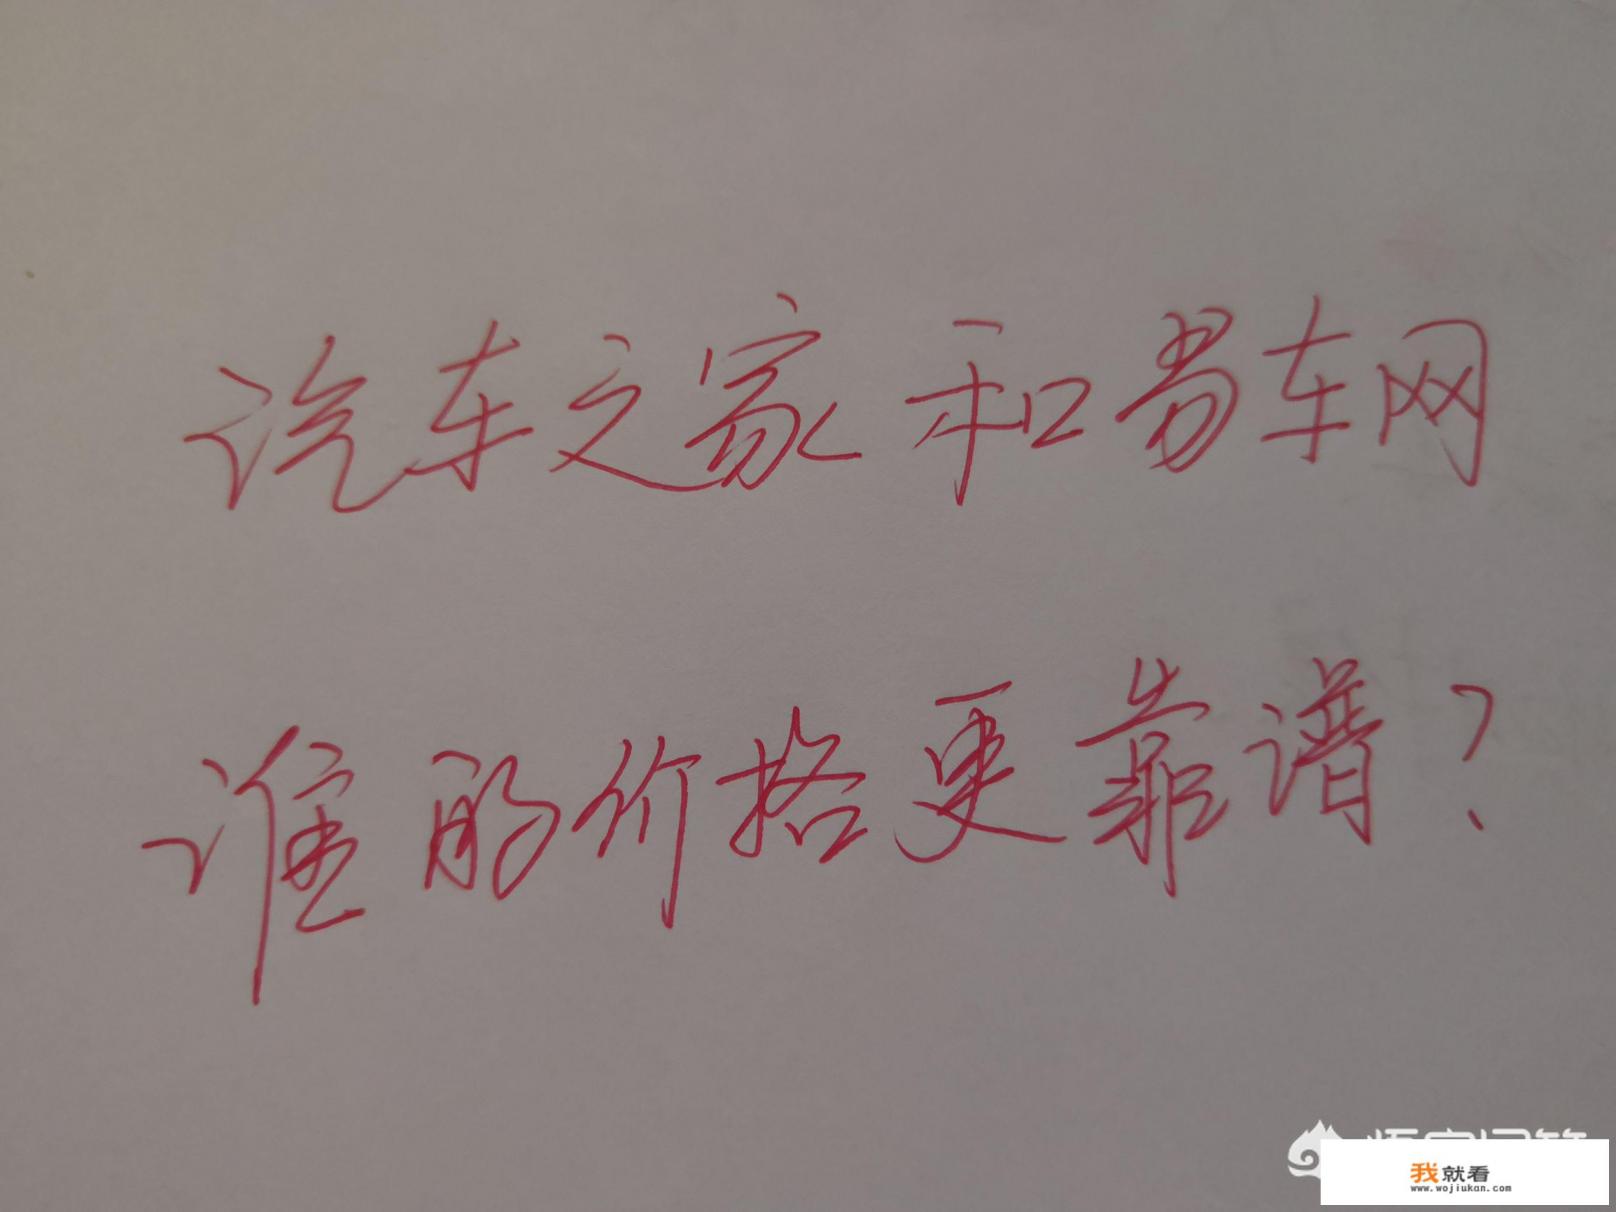 汽车之家和易车网
谁的价格更靠谱?
悟空问答
我就看
www.wojiukan.com